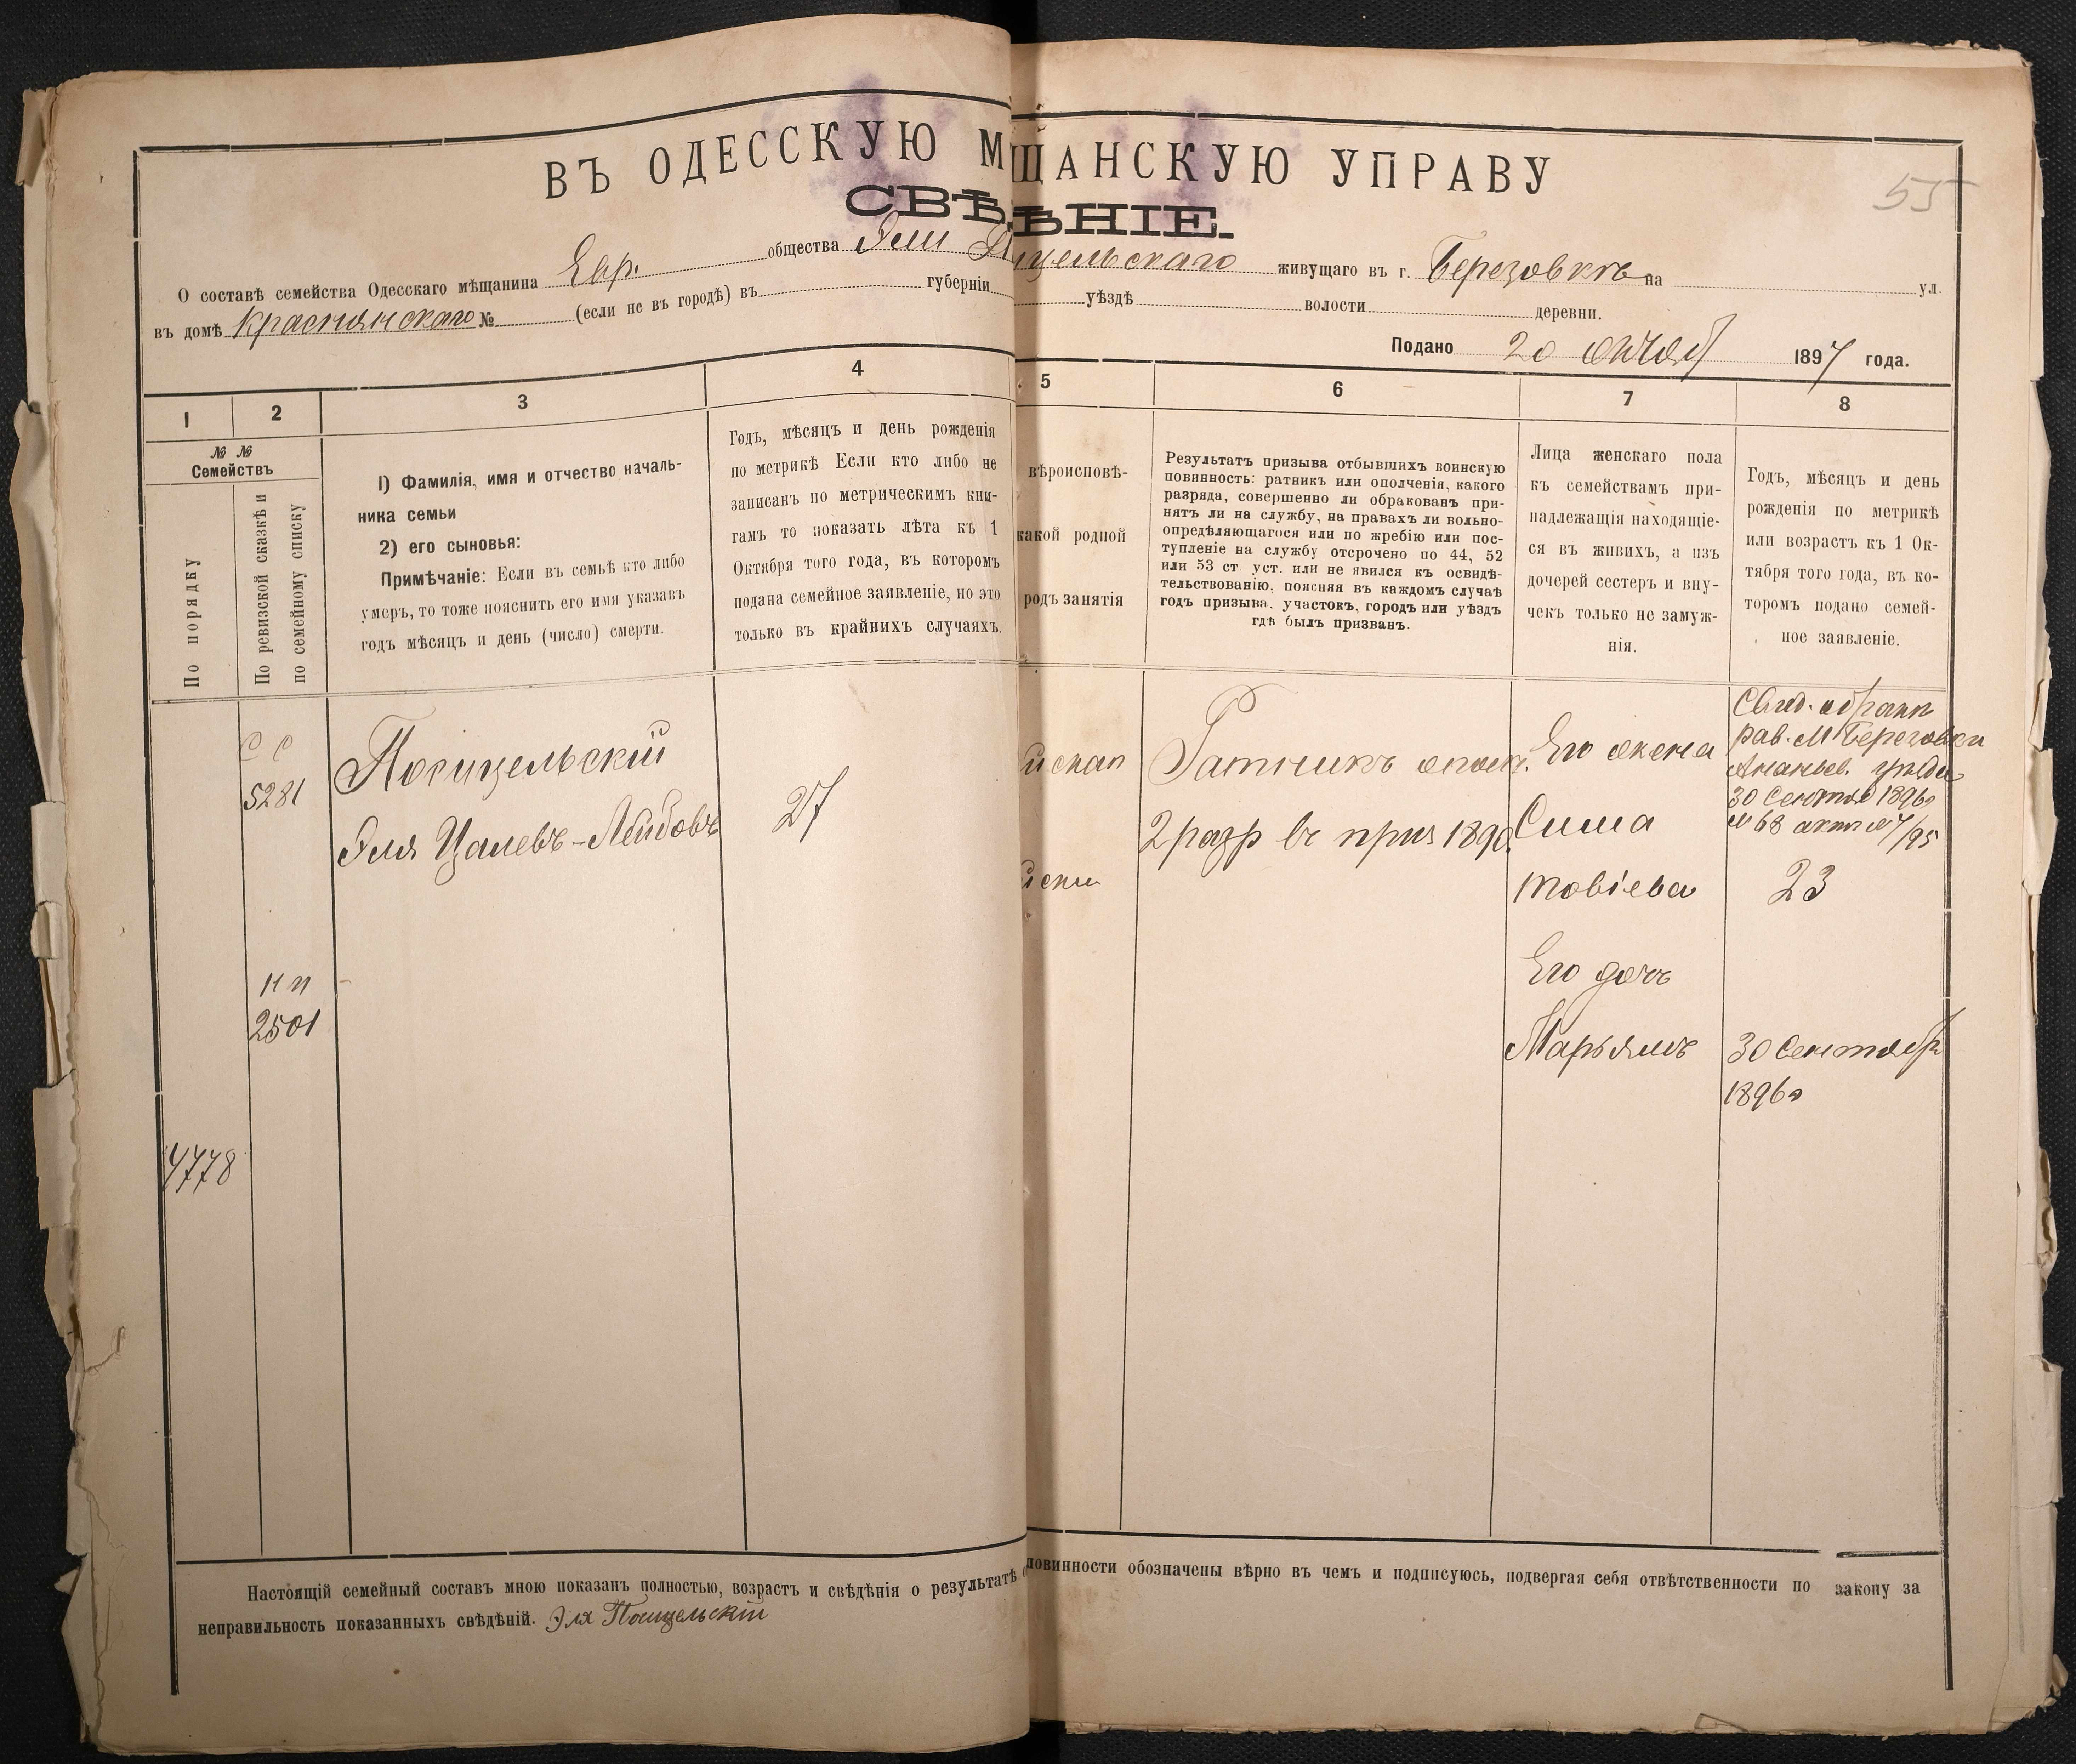 ВЪ ОДЕССКУЮ М ЩАНСКУЮ УПРАВУ
55
СВѢ ѢНІЕ.
О составѣ семейства Одесскаго мѣщанина Евр. общества Эли П ицельскаго живущаго въ г. Березовкѣ на ул.
въ домѣ Краснянскаго № (если не въ городѣ) въ губерніи уѣздѣ волости деревни.
Подано 20 октяб 1897 года.
1 2 3 4 5 6 7 8
№ №
Семействъ
По порядку
По ревизской сказкѣ и
по семейному списку
1) Фамилія, имя и отчество началь-
ника семьи
2) его сыновья:
Примѣчаніе: Если въ семьѣ кто либо
умеръ, то тоже пояснить его имя указавъ
годъ мѣсяцъ и день (число) смерти.
Годъ, мѣсяцъ и день рожденія
по метрикѣ Если кто либо не
записанъ по метрическимъ кни-
гамъ то показать лѣта къ 1
Октября того года, въ которомъ
подана семейное заявленіе, но это
только въ крайнихъ случаяхъ.
вѣроисповѣ-
какой родной
родъ занятія
Результатъ призыва отбывшихъ воинскую
повинность: ратникъ или ополченія, какого
разряда, совершенно ли обракованъ при-
нятъ ли на службу, на правахъ ли вольно-
опредѣляющагося или по жребію или пос-
тупленіе на службу отсрочено по 44, 52
или 53 ст. уст. или не явился къ освидѣ-
тельствованію, поясняя въ каждомъ случаѣ
годъ призыва, участокъ, городъ или уѣздъ
гдѣ былъ призванъ.
Лица женскаго пола
къ семействамъ при-
надлежащія находящіе-
ся въ живихъ, а изъ
дочерей сестеръ и вну-
чекъ только не замуж-
нія.
Годъ, мѣсяцъ и день
рожденія по метрикѣ
или возрастъ къ 1 Ок-
тября того года, въ ко-
торомъ подано семей-
ное заявленіе.
С С
5281
Посицельскій
Эля Цалевъ-Лейбовъ
27
йскаго
йски
Ратникъ опол.
2 разр въ приз 1890
Его жена
Сима
Товіева
Свид. о бракѣ
рав. М Березовки
Ананьев. уѣзда
30 Сентяб 1896г
№ 68 актъ № 7/95
23
Его дочь
Марьямъ
30 Сентябр
1896г
н п
2501
4778
Настоящій семейный составъ мною показанъ полностью, возрастъ и свѣдѣнія о результатѣ повинности обозначены вѣрно въ чемъ и подписуюсь, подвергая себя отвѣтственности по закону за
неправильность показанныхъ свѣдѣній. Эля Посицельскій